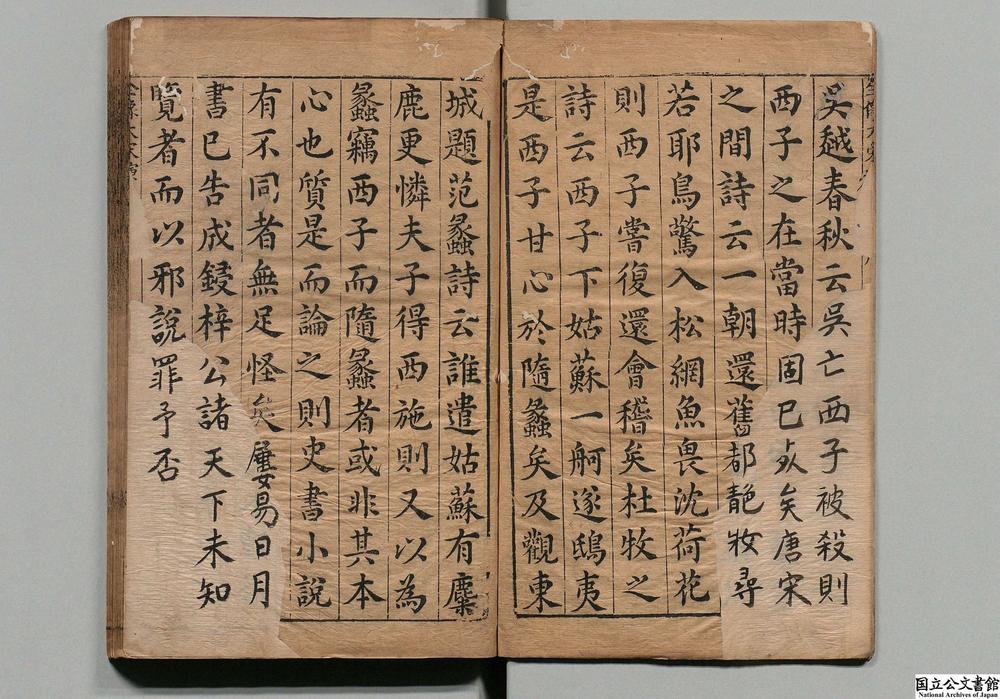 吳越春秋云吳亡西子被殺則
西子之在當時固已死矣唐宋
之間詩云一朝還舊都靘妝尋
若耶鳥驚入松網魚畏沈荷花
則西子嘗復還會稽矣杜牧之
詩云西子下姑蘇一舸遂鴟夷
是西子甘心於隨蠡矣及觀東
城題范蠡詩云誰遣姑蘇有麋
鹿更憐夫子得西施則又以為
蠡竊西子而隨蠡者或非其本
心也質是而論之則史書小說
有不同者無足怪矣屢易日月
書已告成鋟梓公諸天下未知
覽者而以邪說罪予否
国立公文書館
National Archives of Japan